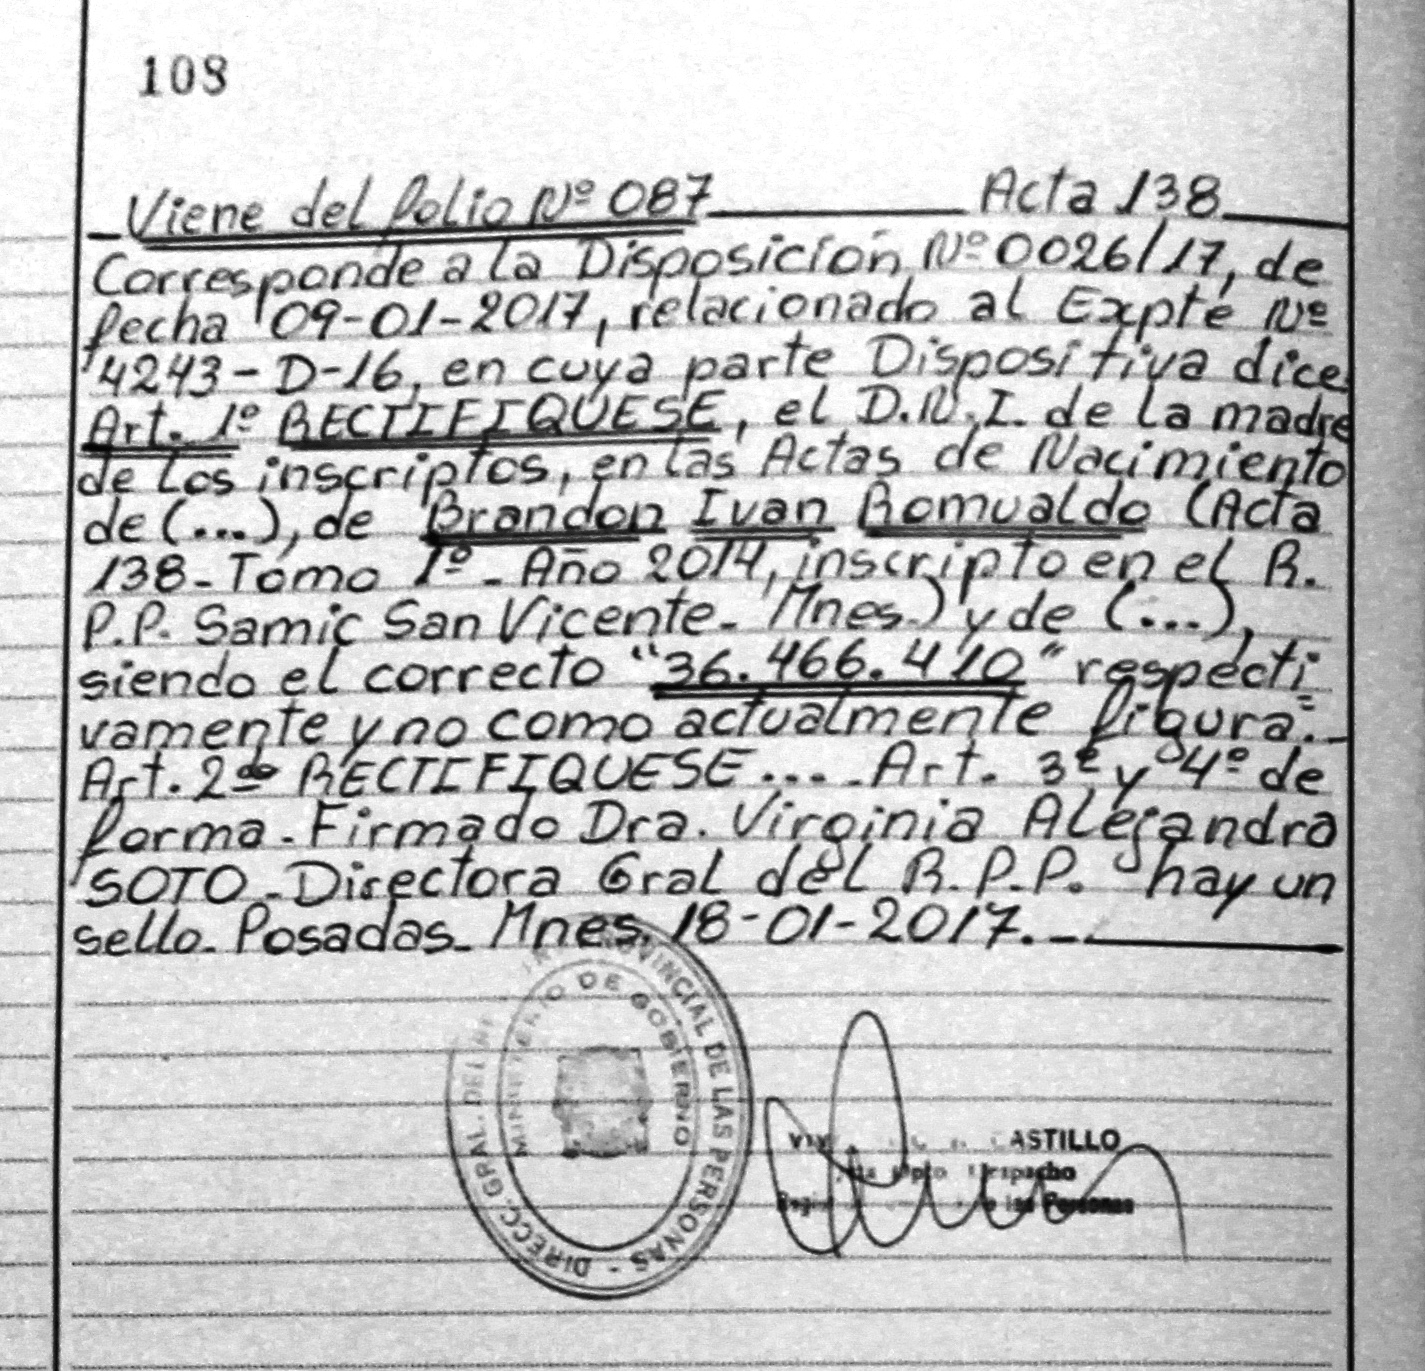 108
Viene del folio Nº 087 Acta 138
Corresponde a la Disposición Nº 0026/17, de
fecha 09-01-2017, relacionado al Expte Nº
4243-D-16, en cuya parte Dispositiva dice
Art. 1º RECTIFIQUESE, el D.N.I. de la madre
de los inscriptos, en las Actas de Nacimiento
de (...), de Brandon Ivan Romualdo (Acta
138-Tomo 1º-Año 2014, inscripto en el R.
P.P. Samic San Vicente- Mnes.) y de (...),
siendo el correcto "36.466.410" respecti=
vamente y no como actualmente figura.-
Art. 2do RECTIFIQUESE.... Art. 3º y 4º de
forma-Firmado Dra. Virginia Alejandra
SOTO-Directora Gral del R.P.P. hay un
sello- Posadas- Mnes. 18-01-2017.-
DIRECC. GRAL. DEL PROVINCIAL DE LAS PERSONAS -
MINISTERIO DE GOBIERNO
CASTILLO
Dpto Despacho
las Personas